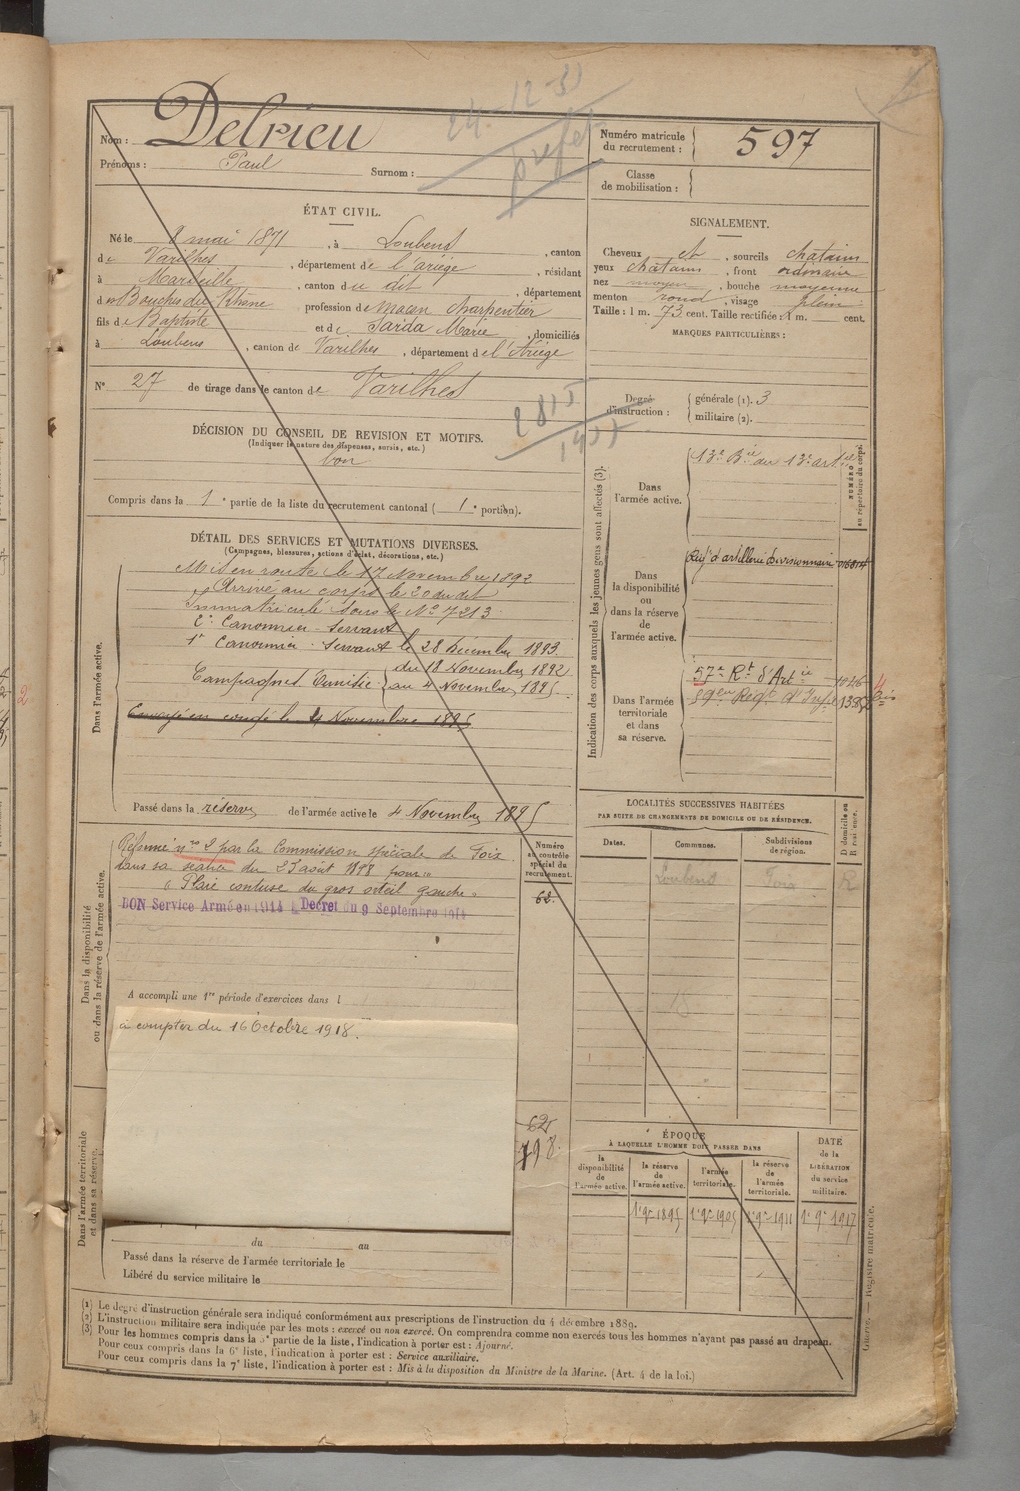 Nom : Delrieu
Prénoms : Paul Surnom :
24-12-31
préfet
Numéro matricule du recrutement : 597
Classe de mobilisation :
ÉTAT CIVIL.
Né le 8 mai 1871, à Loubens, canton
de Varilhes, département de l'ariège, résidant
à Marseille, canton du dit, département
des Bouches du Rhône, profession de Maçon Charpentier
fils de Baptiste et de Sarda Marie, domiciliés
à Loubens, canton de Varilhes, département de l'Ariège
N° 27 de tirage dans le canton de Varilhes
SIGNALEMENT.
Cheveux ch, sourcils chatains
yeux chatains, front ordinaire
nez moyen, bouche moyenne
menton rond, visage plein
Taille : 1 m. 73 cent. Taille rectifiée : 1 m. cent.
MARQUES PARTICULIÈRES :
Degré d'instruction :
générale (1). 3
militaire (2).
DÉCISION DU CONSEIL DE REVISION ET MOTIFS.
(Indiquer la nature des dispenses, sursis, etc.)
bon
Compris dans la 1e partie de la liste du recrutement cantonal ( 1e portion).
DÉTAIL DES SERVICES ET MUTATIONS DIVERSES.
(Campagnes, blessures, actions d'éclat, décorations, etc.)
Dans l'armée active.
Mis en route le 17 Novembre 1892
Arrivé au corps le 20 du dit
Immatriculé sous le N° 7213
2e Canonnier-Servant
1er Canonnier-Servant le 28 décembre 1893.
Campagnes Tunisie : du 18 Novembre 1892
au 4 Novembre 1895.
Envoyé en congé le 4 Novembre 1895
Passé dans la réserve de l'armée active le 4 Novembre 1895
Indication des corps auxquels les jeunes gens sont affectés (3).
NUMÉRO au répertoire du corps.
Dans l'armée active.
13e Bie du 13e artie
Dans la disponibilité ou dans la réserve de l'armée active.
Régt d'artillerie divisionnaire
Dans l'armée territoriale et dans sa réserve.
57e Rt d'Artie 1046
59em Régt d'Infie
LOCALITÉS SUCCESSIVES HABITÉES
PAR SUITE DE CHANGEMENTS DE DOMICILE OU DE RÉSIDENCE.
Dates. Communes. Subdivisions de région. D domicile ou R résidence.
Loubens Foix R
Dans la disponibilité ou dans la réserve de l'armée active.
Numéro au contrôle spécial du recrutement.
62.
Réformé n° 2 par la Commission spéciale de Foix
dans sa séance du 23 août 1898 pour
" Plaie contuse du gros orteil gauche "
BON Service Armé en 1914 Décret du 9 Septembre 1914
A accompli une 1re période d'exercices dans l
à compter du 16 Octobre 1918.
625
798.
Dans l'armée territoriale et dans sa réserve.
du au
Passé dans la réserve de l'armée territoriale le
Libéré du service militaire le
ÉPOQUE
À LAQUELLE L'HOMME DOIT PASSER DANS
la disponibilité de l'armée active.
la réserve de l'armée active.
l'armée territoriale.
la réserve de l'armée territoriale.
DATE de la LIBÉRATION du service militaire.
1er 9re 1895 1er 9re 1905 1er 9re 1911 1er 9re 1917
(1) Le degré d'instruction générale sera indiqué conformément aux prescriptions de l'instruction du 4 décembre 1889.
(2) L'instruction militaire sera indiquée par les mots : exercé ou non exercé. On comprendra comme non exercés tous les hommes n'ayant pas passé au drapeau.
(3) Pour les hommes compris dans la 5e partie de la liste, l'indication à porter est : Ajourné.
Pour ceux compris dans la 6e liste, l'indication à porter est : Service auxiliaire.
Pour ceux compris dans la 7e liste, l'indication à porter est : Mis à la disposition du Ministre de la Marine. (Art. 4 de la loi.)
Guerre. — Registre matricule.